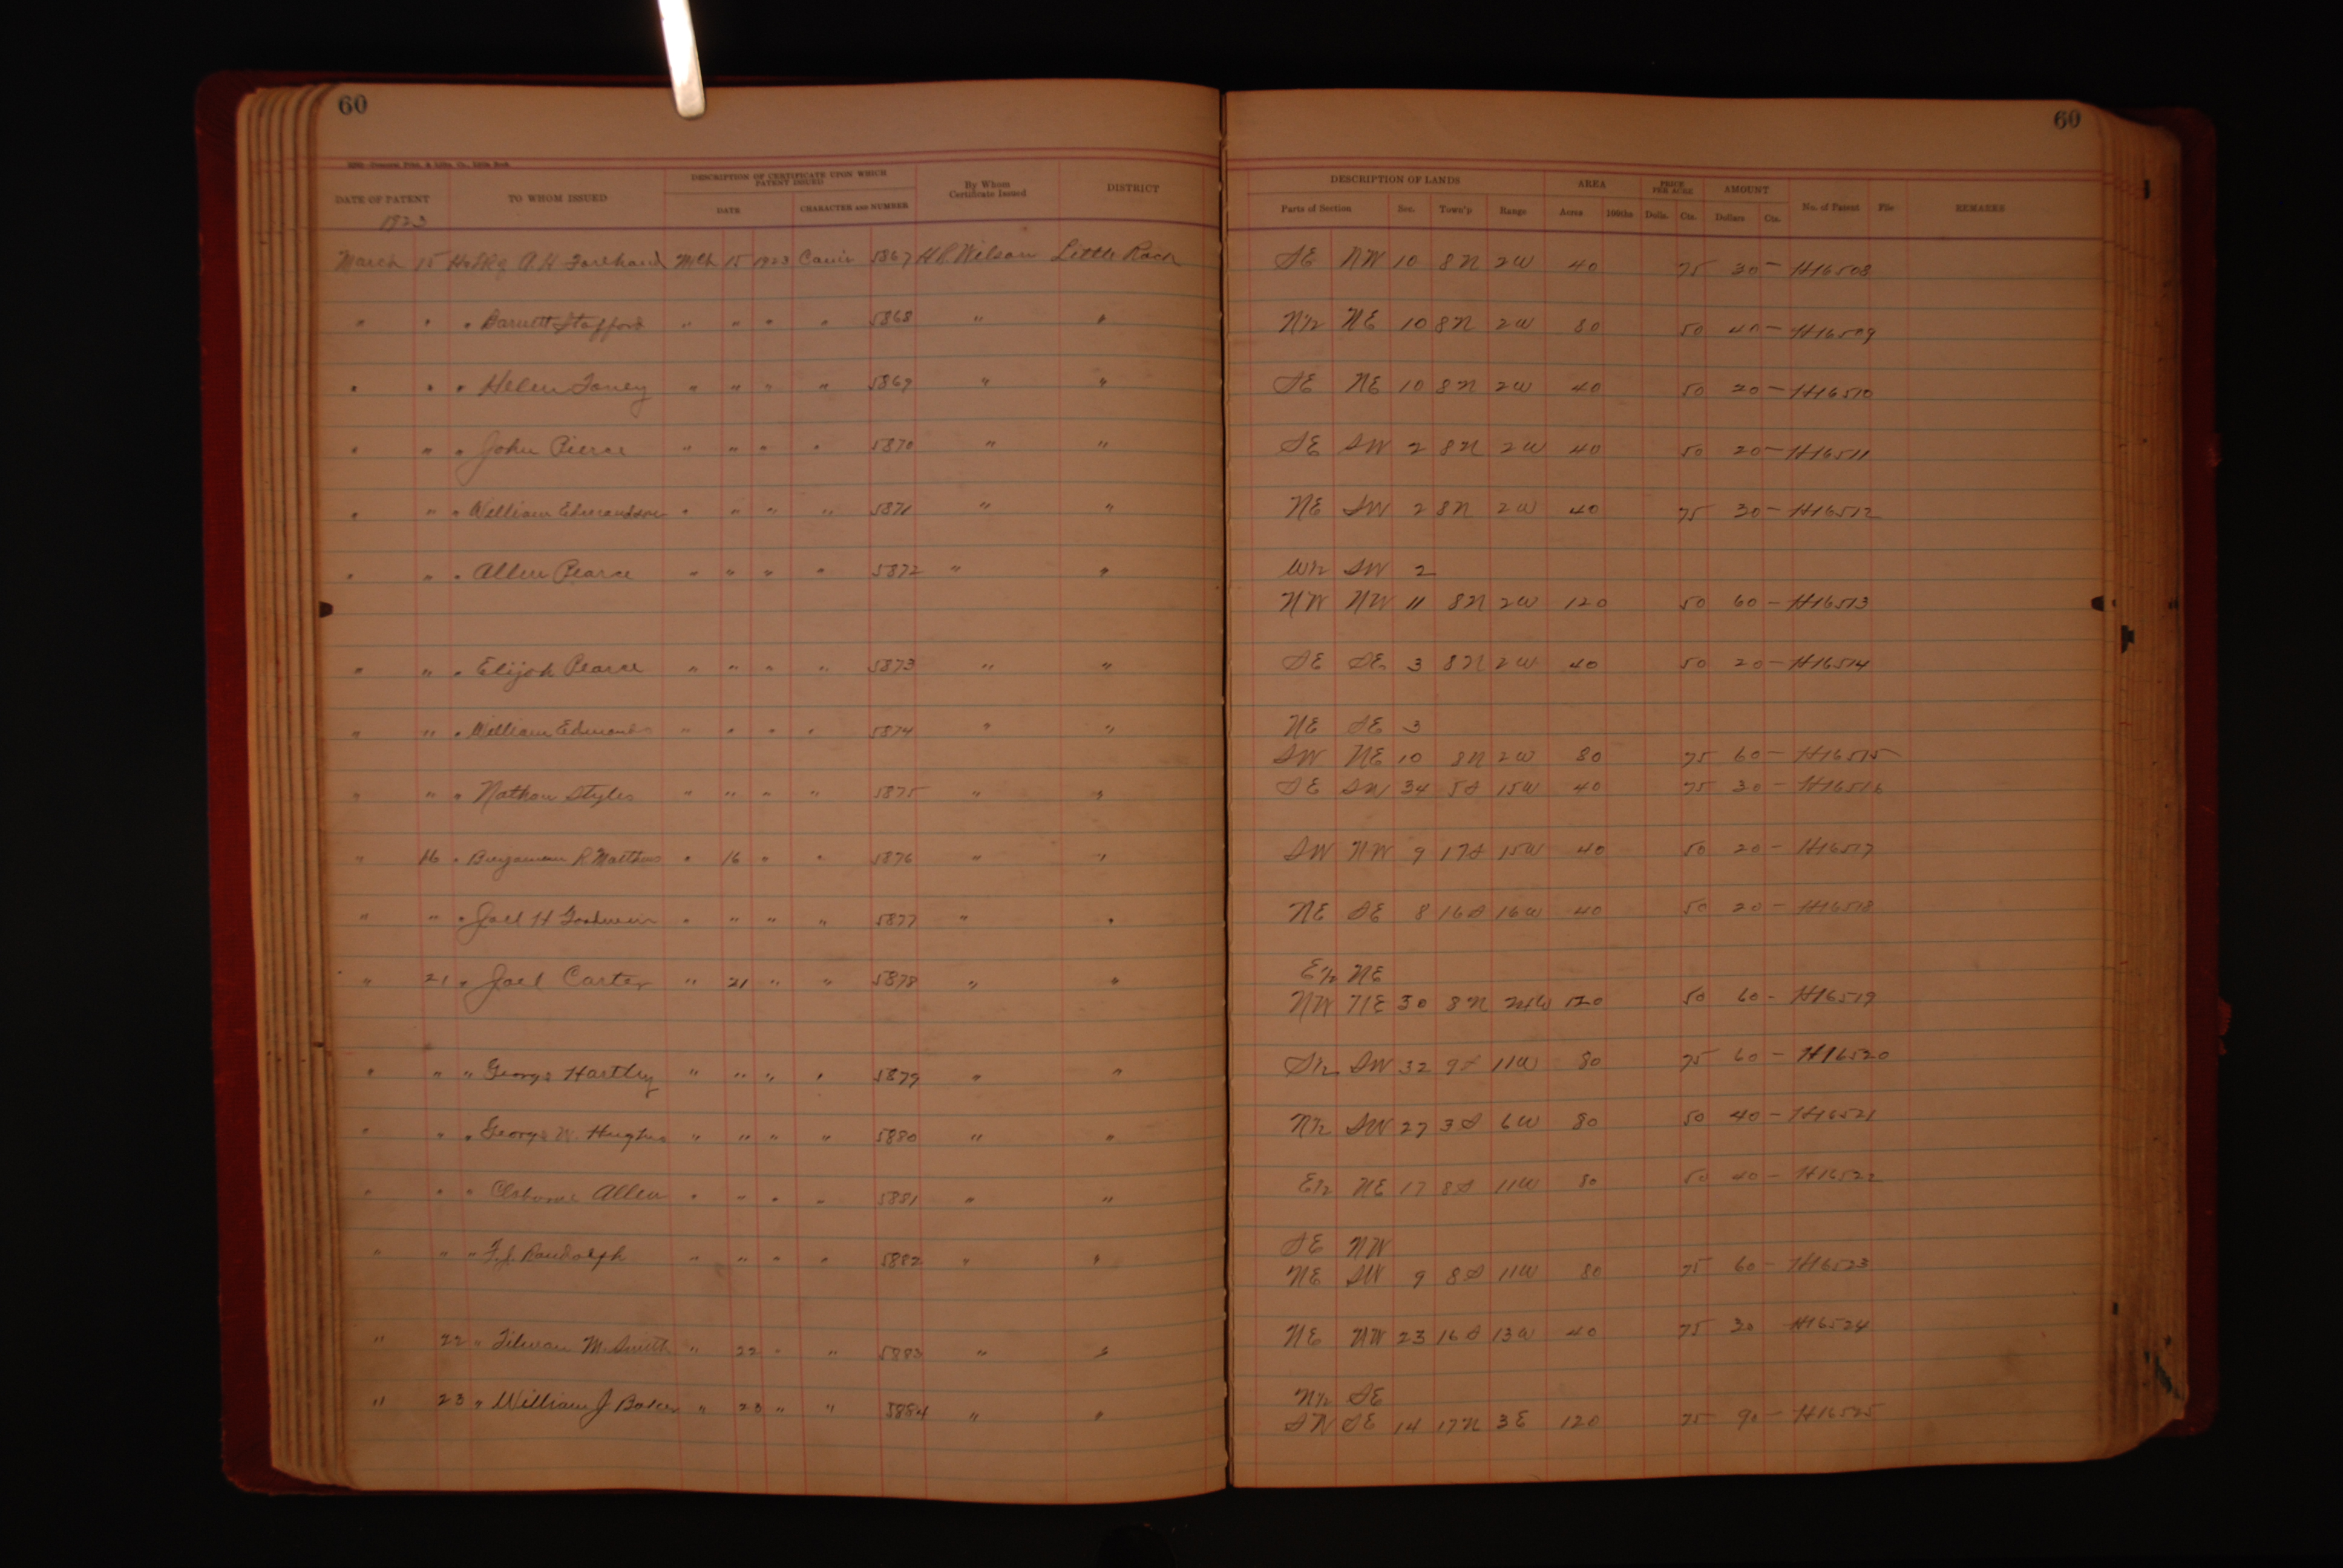 60
60
DATE OF PATENT TO WHOM ISSUED DESCRIPTION OF CERTIFICATE UPON WHICH PATENT ISSUED By Whom Certificate Issued DISTRICT DESCRIPTION OF LANDS AREA PRICE PER ACRE AMOUNT No. of Patent File REMARKS
DATE CHARACTER AND NUMBER Parts of Section Sec. Town'p Range Acres 100ths Dolls. Cts. Dollars Cts.
1923
March 15 A. H. Forehand Mch 15 1923 5867 Wilson Little Rock SE NW 10 8N 2W 40 75 30 - H16508
" " " Barnett Stafford " " " " 5868 " " N½ NE 10 8N 2W 80 50 40 - H16509
" " " Helen " " " " 5869 " " SE NE 10 8N 2W 40 50 20 - H16510
" " " John Pierce " " " " 5870 " " SE SW 2 8N 2W 40 50 20 - H16511
" " " William Edmandson " " " " 5871 " " NE SW 2 8N 2W 40 75 30 - H16512
" " " Allen Pearce " " " " 5872 " " W½ SW 2
NW NW 11 8N 2W 120 50 60 - H16513
" " " Elijah Pearce " " " " 5873 " " SE SE 3 8N 2W 40 50 20 - H16514
" " " William Edmonds " " " " 5874 " " NE SE 3
SW NE 10 8N 2W 80 75 60 - H16515
" " " Nathan Styles " " " " 5875 " " SE SW 34 5S 15W 40 75 30 - H16516
" 16 " Benjamin R Matthews " 16 " " 5876 " " SW NW 9 17S 15W 40 50 20 - H16517
" " " Joel H Goodwin " " " " 5877 " " NE SE 8 16S 16W 40 50 20 - H16518
" 21 " Joel Carter " 21 " " 5878 " " E½ NE
NW NE 30 8N 120 50 60 - H16519
" " " George Hartley " " " " 5879 " " S½ SW 32 9S 11W 80 75 60 - H16520
" " " George W. Hughes " " " " 5880 " " N½ SW 27 3S 6W 80 50 40 - H16521
" " " Allen " " " " 5881 " " E½ NE 17 8S 11W 80 50 40 - H16522
" " " F. J. Randolph " " " " 5882 " " SE NW
NE SW 9 8S 11W 80 75 60 - H16523
" 22 " Tilman M. Smith " 22 " " 5883 " " NE NW 23 16S 13W 40 75 30 H16524
" 23 " William J Baker " 23 " " 5884 " " N½ SE
SW SE 14 17N 3E 120 75 90 - H16525